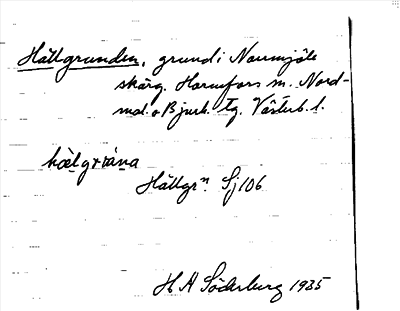 Hällgrunden, grund i Norrmjöle
skärg. Hörnefors m. Nord-
md. o Bjurh. tg. Västerb. l.
Hällgrⁿ Sj 106
H A Söderberg 1935